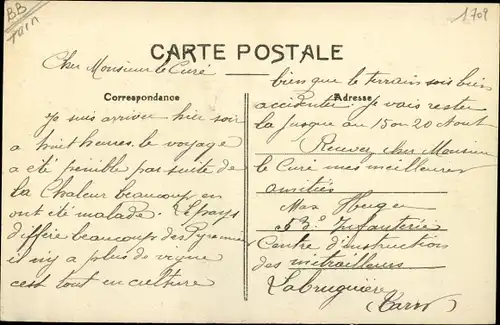 BB
Tarn
1709
CARTE POSTALE
Cher Monsieur le Curé
Correspondance
Je suis arrivé hier soir
a huit heures. le voyage
a été penible par suite de
la Chaleur beaucoup en
ont été malade. Le pays
differe beaucoup des Pyrennées
il ny a plus de vigne
cest tout en culture
bien que le terrain sois bien
Adresse
accidenté. je vais rester
la jusque au 15 ou 20 Aout
Recevez cher Monsieur
le Curé mes meilleures
amitiés
Max
Infanterie
Centre d'instruction
des mitrailleurs
Labruguière
(Tarn)